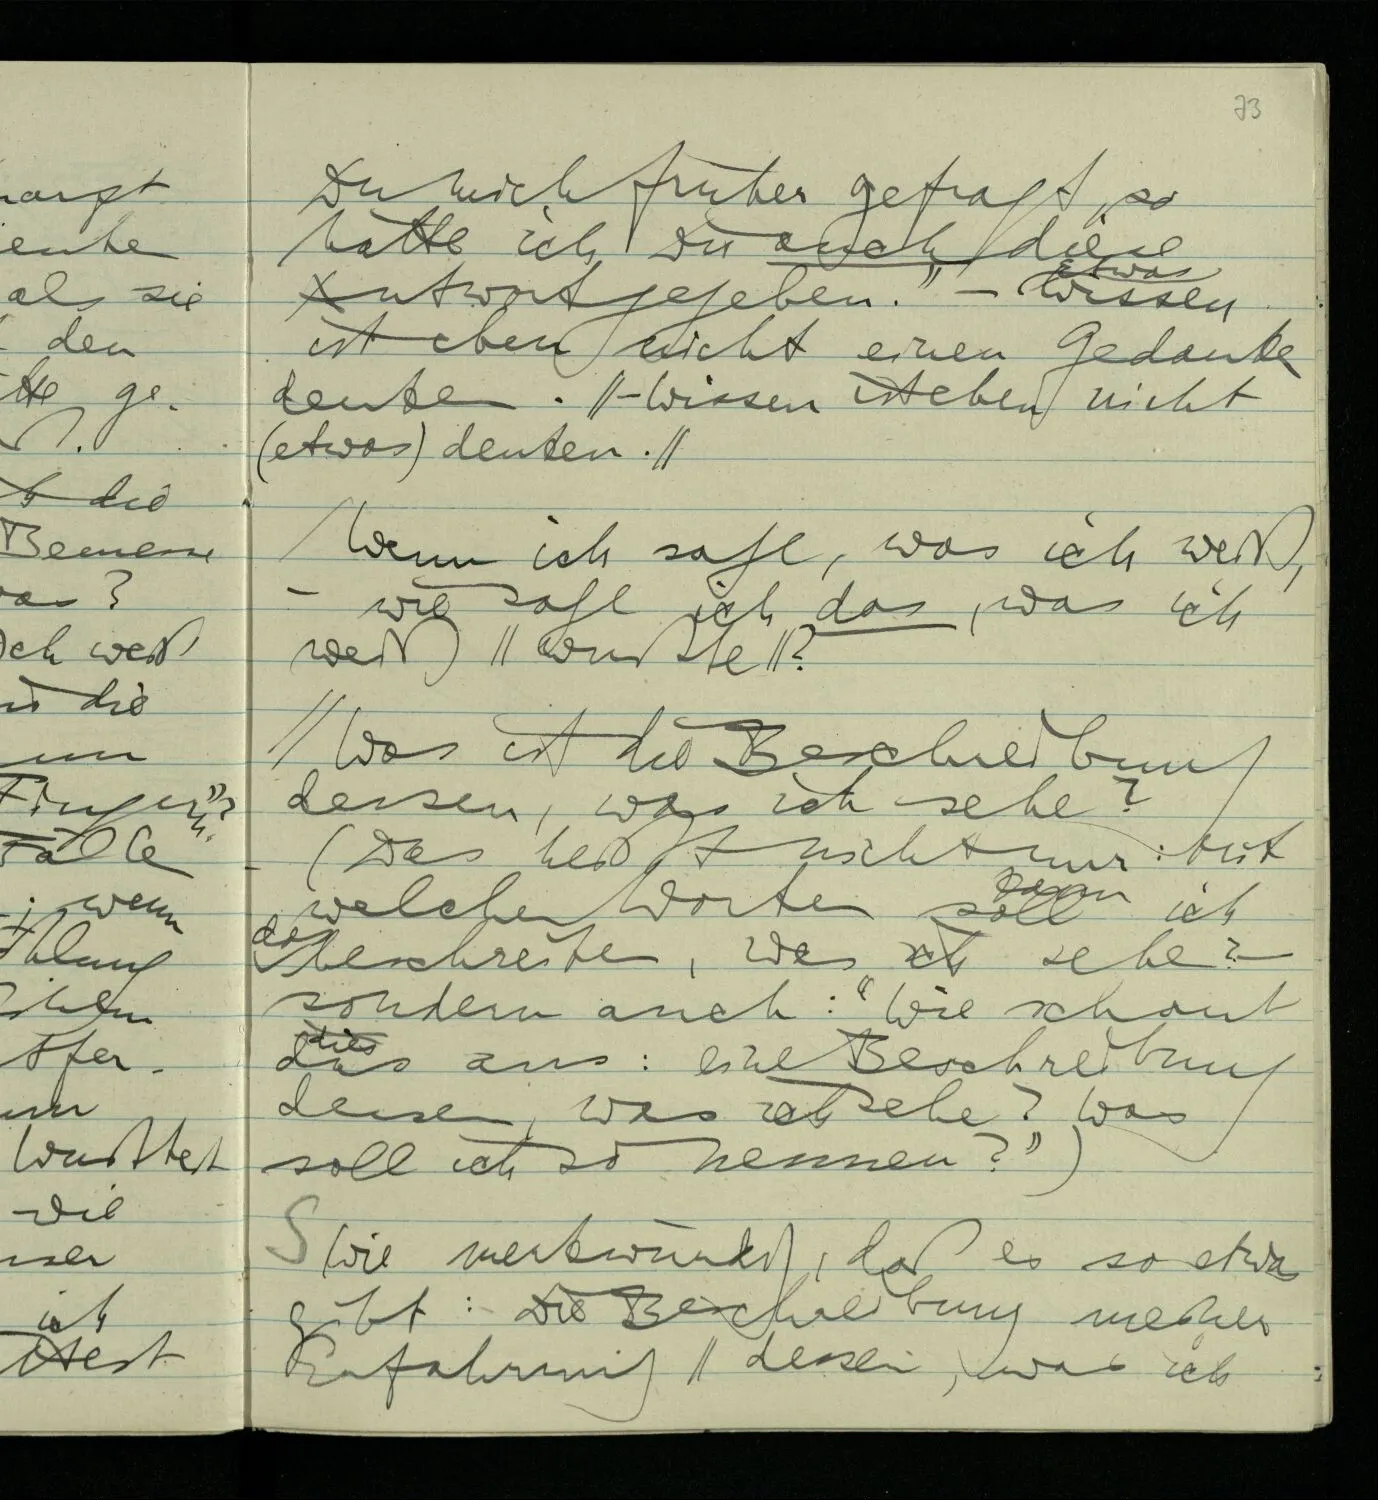 73
Du mich früher gefragt, so
hätte ich Dir auch diese
Antwort gegeben." – Wissen
etwas
ist eben nicht einen Gedanken
denken. // – Wissen ist eben nicht
(etwas) denken. //
/ Wenn ich sage, was ich weiß,
– wie sage ich das, was ich
weiß // wußte //?
// Was ist die Beschreibung
dessen, was ich sehe?
(Das heißt nicht nur: mit
welchen Worten soll ich
dann
das beschreiben, was ich sehe? –
sondern auch: "Wie schaut
dies
das aus: eine Beschreibung
dessen, was ich sehe? Was
soll ich so nennen?")
S Wie merkwürdig, daß es so etwas
gibt: Die Beschreibung meiner
Erfahrung // dessen, was ich
als sie
den
ge-
die
?
Ich weiß
die
Finger"?
Fälle
; wenn
wußtest
wie
ich